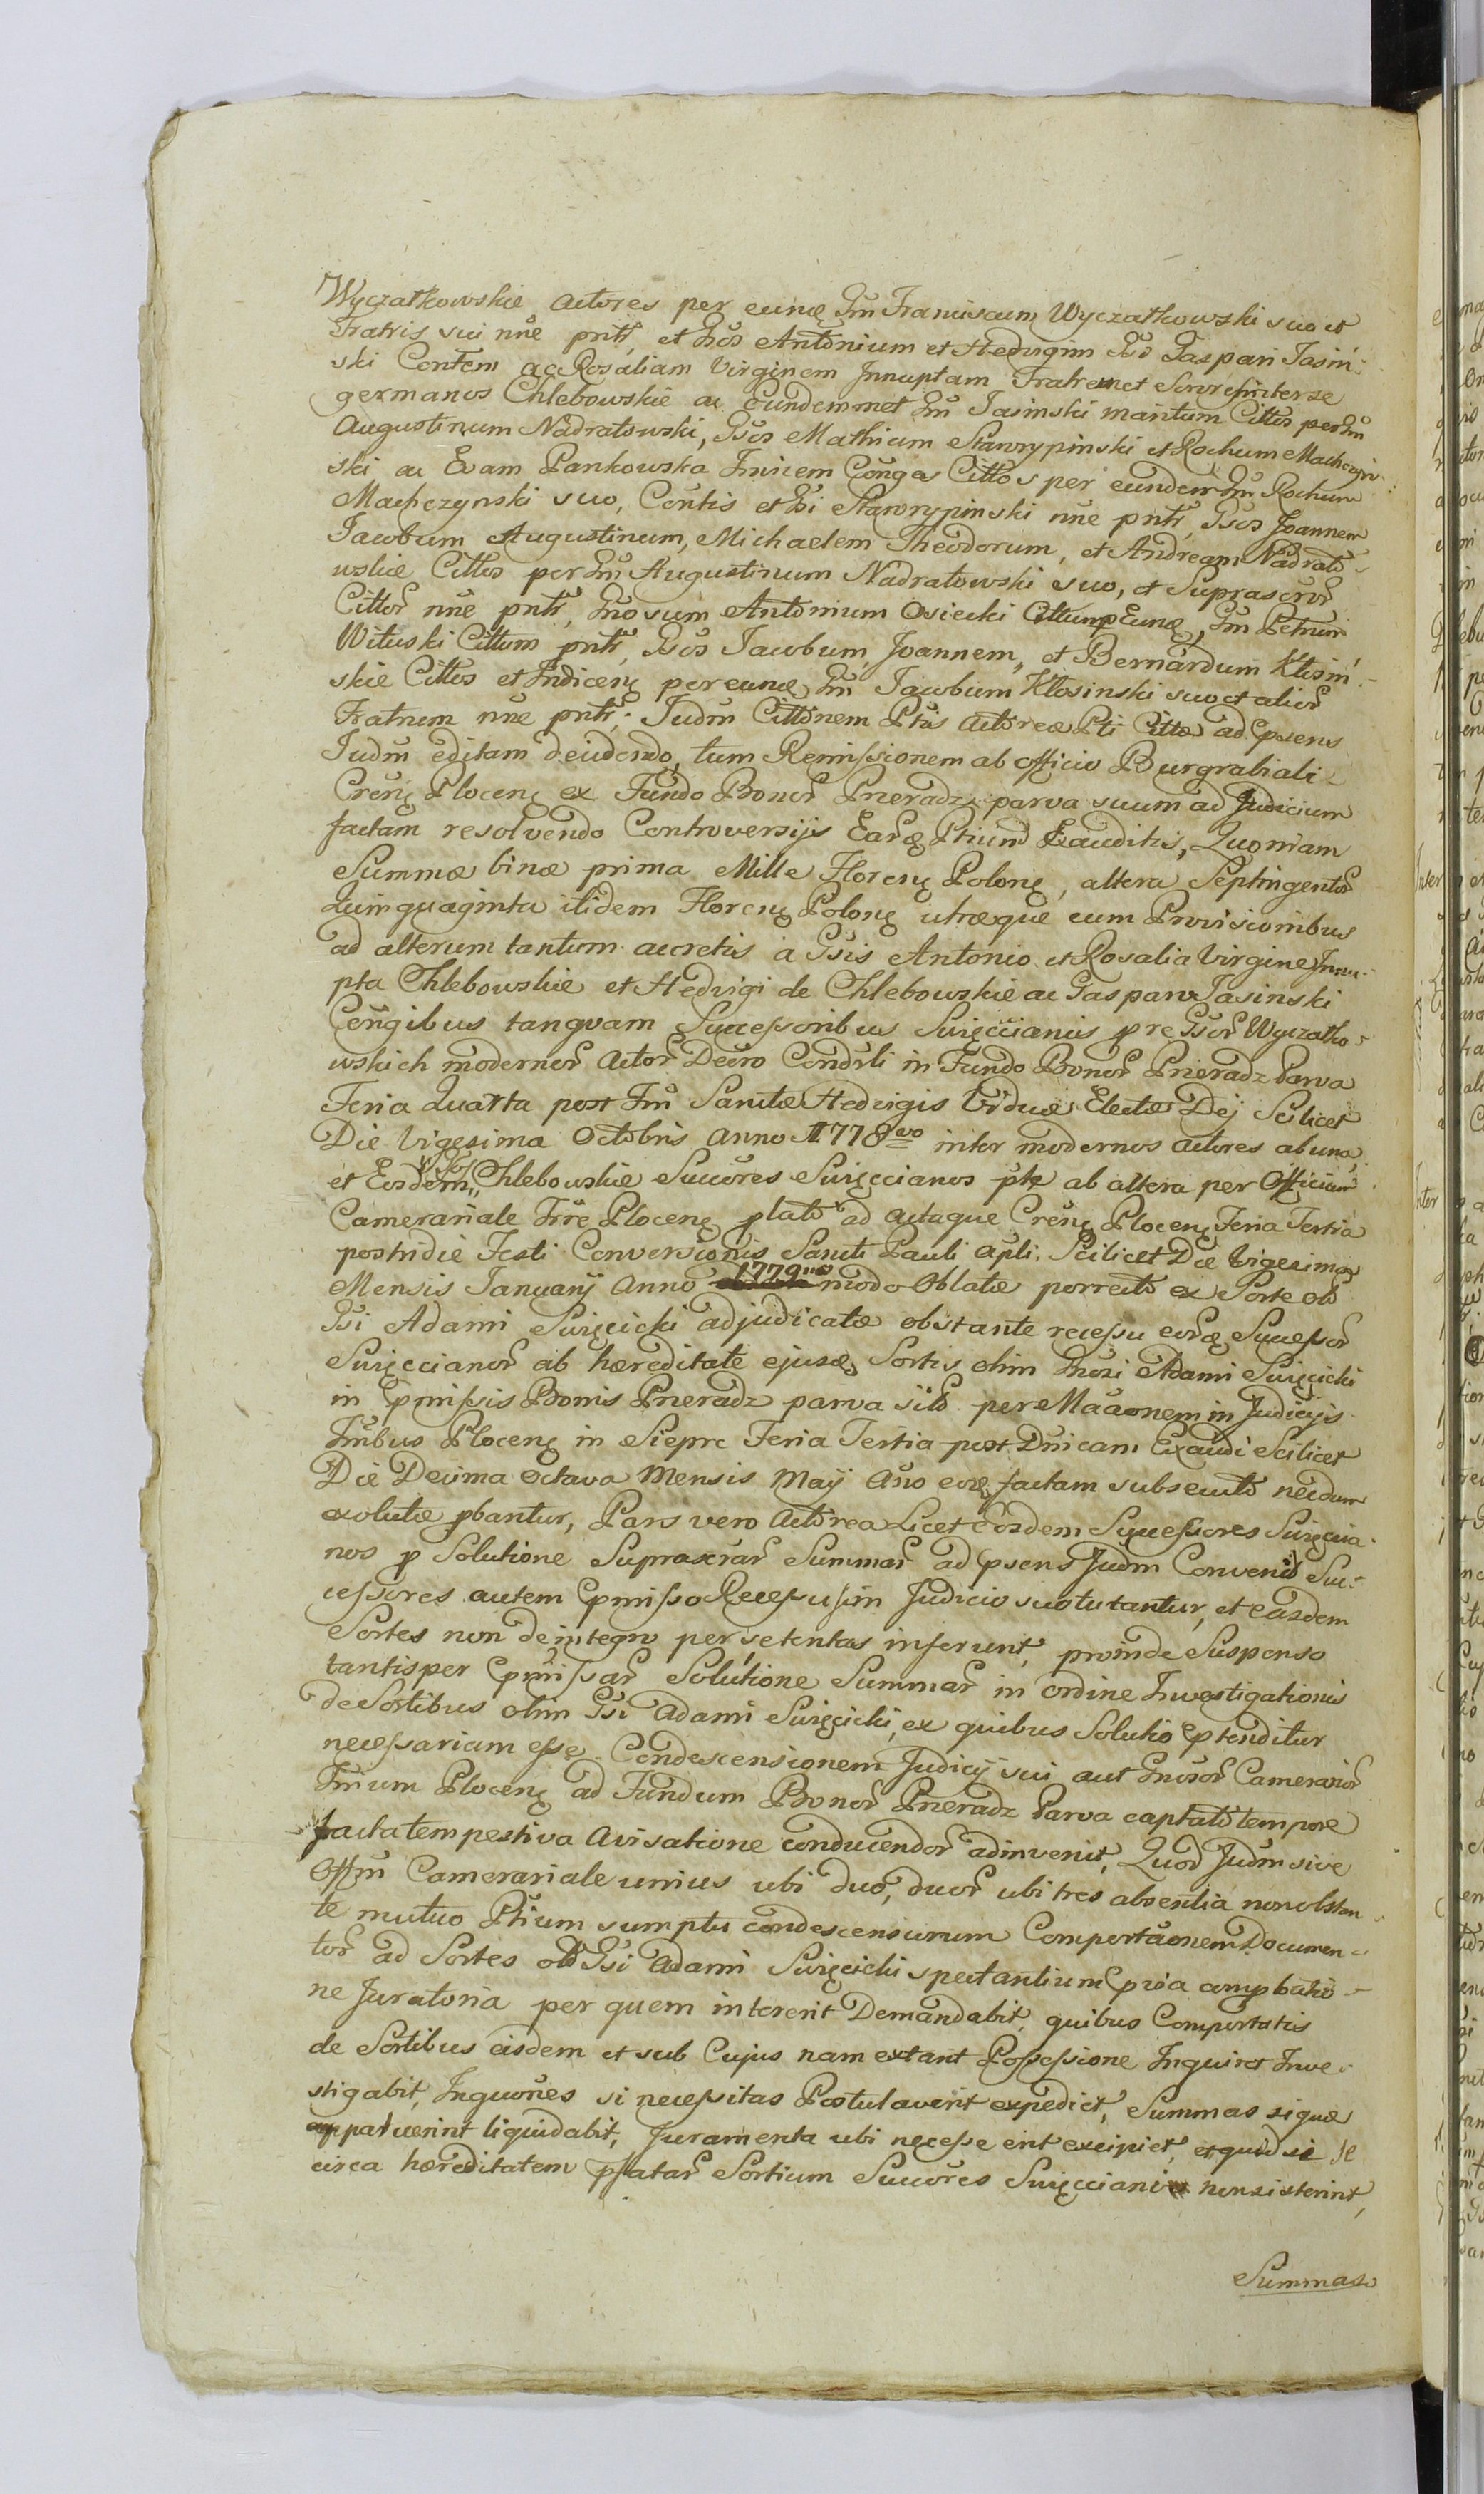 Wyczałkowskie actores per eunđ Gm̃ Franciscum Wyczałkowski suo et
Fratris sui nñe pntr̃, et Gños Antonium et Hedvigim Gsõ Gaspari Jasiń-
ski Contem ac Rosaliam Virginem Innuptam Fratrem et Sorores inter se
germanos Chlebowskie ac eundemmet Gm̃ Jasinski maritum Citłos per Gm̃
Augustinum Nadratowski, Gsos Mathiam Skawrypinski et Rochum Machczyń-
ski ac Evam Pankowska Invicem Cõnges Citłos per eundem Gm̃ Rochum
Machczynski suo, Cõntis et Gsi Skawrypinski nñe pntr̃, Gsos Joannem
Jacobum Augustinum, Michaelem Theodorum, et Andream Nadrato-
wskie Citłos per Gm̃ Augustinum Nadratowski suo, et Suprascr̃or̃
Citłor̃ nñe pntr̃, Gnosum Antonium Osiecki Citłum p Eunđ, Gm̃ Petrum
Wituski Citłum pntr̃, Gsos Jacobum Joannem, et Bernardum Kłosiń-
skie Citłos et Indiceng̃ per eunđ Gm̃ Jacobum Kłosinski suo et alior̃
Fratrum nñe pntr̃; Judm̃ Citt̃õnem Ptis actoreæ Pti Cittæ ad Psens
Judm̃ editam decidendo, tum Remissionem ab officio Burgrabiali
Creng̃ Plocenɠ ex Fundo Bonor̃ Pneradz parva suum ad Judicium
factam resolvendo Controversijs Earđ Ptium Exauditis, Quoniam
Summæ binæ prima Mille Florenɠ Polonɠ, altera Septingentor̃
Quinquaginta itidem Florenɠ Polonɠ utræque cum Provisionibus
ad alterum tantum accretis a Gsis Antonio et Rosalia Virgine Innu-
pta Chlebowskie et Hedvigi de Chlebowskie ac Gaspare Jasinski
Cõngibus tanquam Successoribus Swięccianis pre Gsor̃ Wyczałko-
wskich modernor̃ Actor̃ Decro Condit̃i in Fundo Bonor̃ Pneradz Parva
Feria Quarta post Fm̃ Sanctæ Hedvigis Viduæ Electæ Dej Scilicet
Die Vigesima Octobris Anno 1778vo inter modernos actores ab una,
et Eosdem Gsos Chlebowskie Succõres Swięccianos pte ab altera per Officium
Camerariale Trr̃e Plocenɠ plato ad actaque Crenɠ Plocenɠ Feria Tertia
postridie Festi Conversionis Sancti Pauli apli. Scilicet Die Vigesima
Mensis Januarij Anno 1779no modo Oblatæ porrecto ex Sorte olõ
Gsi Adami Swięcicki adjudicatæ obstante recessu eorđ Successor̃
Swięccianor̃ ab hæreditate ejusđ Sortis olim Gnosi Adami Swięcicki
in Pmissis Bonis Pneradz parva silõ per Mãaonem in Judicijs
Trr̃ibus Plocenɠ in Sieprc Feria Tertia post Dnicam Exaudi Scilicet
Die Decima octava Mensis Maij Año eođ factam subsecuto necdum
exolutæ pbantur, Pars vero Actorea Licet eosdem Successores Swięccia-
nos p Solutione Suprascr̃ar̃ Summar̃ ad psens Judm̃ Convenit Suc-
cessores autem Pmisso Recessu sin Judicio suo tutantur, et easdem
Sortes non de integro per se tentas inferunt, proinde Suspenso
tantisper Pmissar̃ Solutione Summar̃ in ordine Investigationis
de Sortibus olim Gsi Adami Swięcicki, ex quibus Solutio Ptenditur
necessariam esse Condescensionem Judicij sui aut Gnosor̃ Camerarior̃
Trr̃ium Plocenɠ ad Fundum Bonor̃ Pneradz Parva captato tempore
facta tempestiva Avisatione conducendor̃ adinvenit, Quod Judm̃ sive
Offm̃ Camerariale unius ubi duo, duor̃ ubi tres absentia non obstan-
te mutuo Ptium sumptu condescensurum Comportãonem Documen-
tor̃ ad Sortes olõ Gsi Adami Swięcicki spectantium Pvia compbatio-
ne Juratoria per quem intererit Demandabit, quibus Comportatis
de Sortibus eisdem et sub Cujus nam extant Possessione Inquiret Inve-
stigabit, Inquõnes si necessitas Postulaverit expediet, Summas si quæ
apparuerint liquidabit, Juramenta ubi necesse erit excipiet, et quod si se
circa hæreditatem pfatar̃ Sortium Succõres Swięcciani non sisterint,
Summas